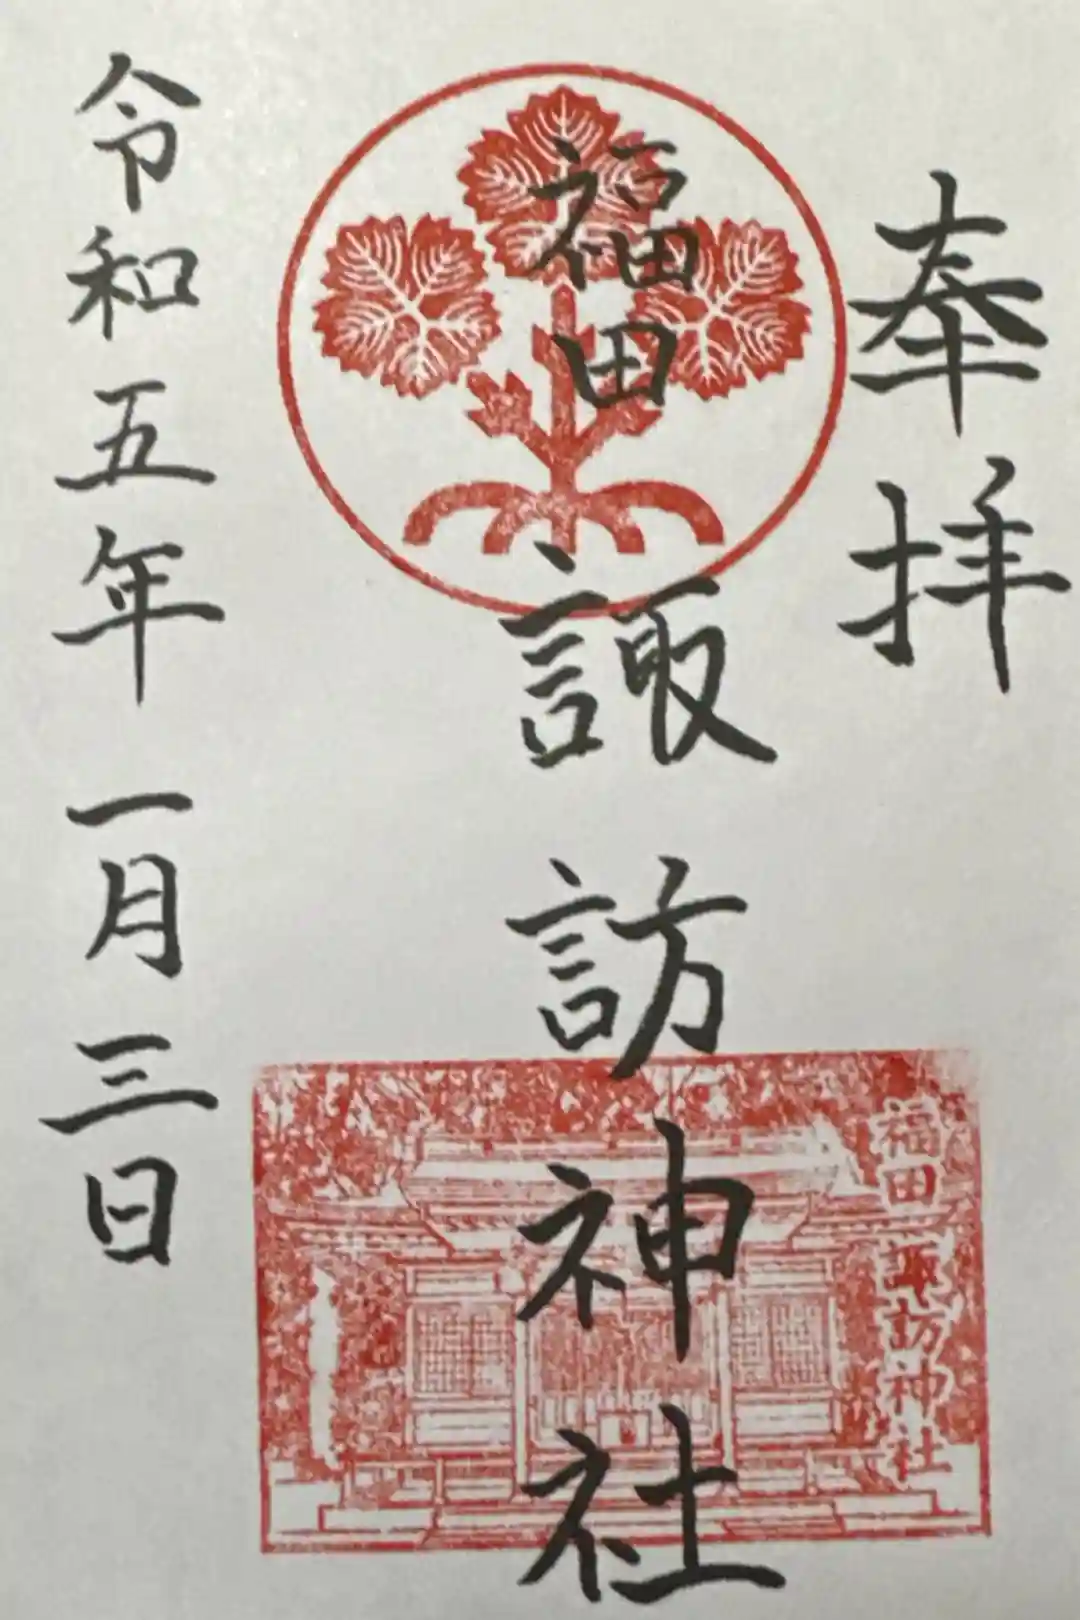 奉拝
福田
諏訪神社
令和五年一月三日
福田諏訪神社